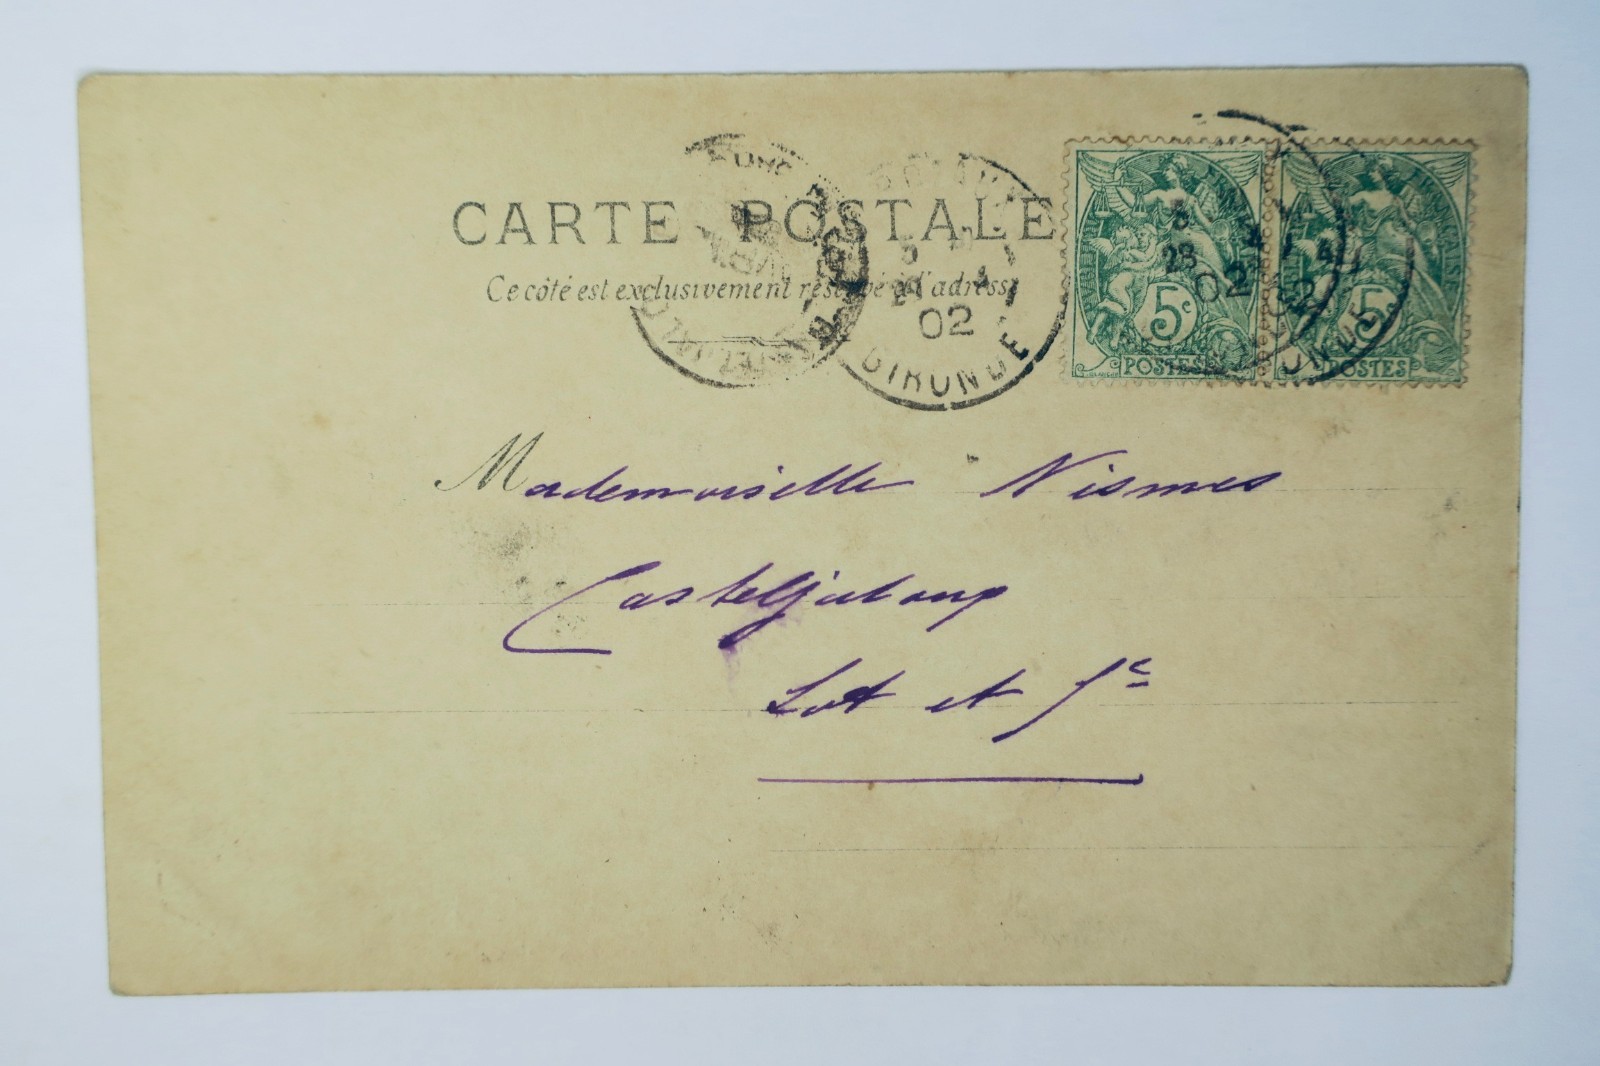 CARTE POSTALE
Ce côté est exclusivement réservé à l'adresse
GIRONDE
02
5
28
02
RÉPUBLIQUE FRANÇAISE
5c
POSTES
5c
POSTES
Mademoiselle Nismes
Casteljaloux
Lot et Gne